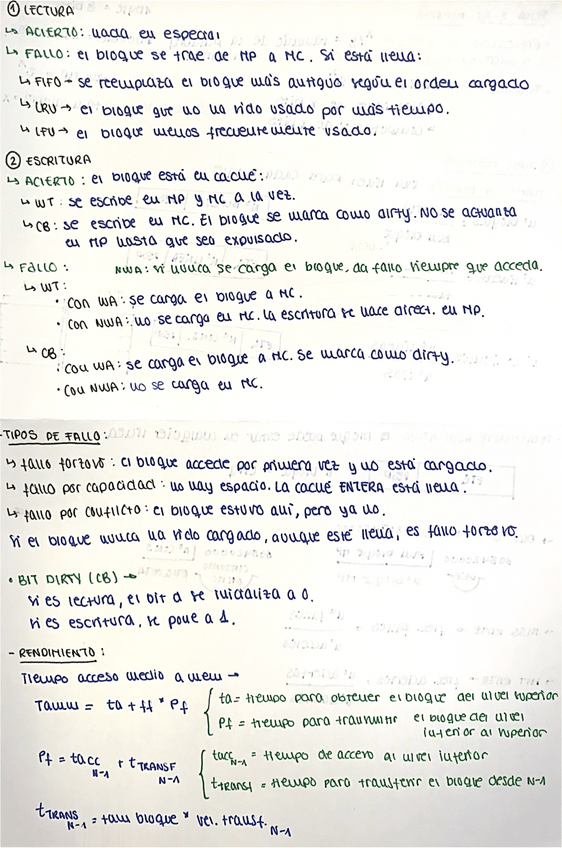 ① LECTURA
↳ ACIERTO: nada en especial
↳ FALLO: el bloque se trae de MP a MC. Si está llena:
↳ FIFO → se reemplaza el bloque más antiguo según el orden cargado
↳ LRU → el bloque que no ha sido usado por más tiempo.
↳ LFU → el bloque menos frecuentemente usado.
② ESCRITURA
↳ ACIERTO: el bloque está en caché:
↳ WT: se escribe en MP y MC a la vez.
↳ CB: se escribe en MC. El bloque se marca como dirty. NO se actualiza
en MP hasta que sea expulsado.
↳ FALLO: NWA: si nunca se carga el bloque, da fallo siempre que acceda.
↳ WT:
· Con WA: se carga el bloque a MC.
· Con NWA: no se carga en MC. La escritura se hace direct. en MP.
↳ CB:
· Con WA: se carga el bloque a MC. Se marca como dirty.
· Con NWA: no se carga en MC.
- TIPOS DE FALLO:
↳ fallo forzoso: el bloque accede por primera vez y no está cargado.
↳ fallo por capacidad: no hay espacio. La caché ENTERA está llena.
↳ fallo por conflicto: el bloque estuvo aquí, pero ya no.
Si el bloque nunca ha sido cargado, aunque esté llena, es fallo forzoso.
• BIT DIRTY (CB) →
Si es lectura, el bit d se inicializa a 0.
Si es escritura, se pone a 1.
- RENDIMIENTO:
Tiempo acceso medio a mem →
Tamm = ta + ff * Pf { ta = tiempo para obtener el bloque del nivel superior
Pf = tiempo para transmitir el bloque del nivel
inferior al superior
Pf = tacc N-1 + tTRANSF N-1 { tacc N-1 = tiempo de acceso al nivel inferior
tTRANSF = tiempo para transferir el bloque desde N-1
tTRANS N-1 = tam bloque * vel. transf. N-1